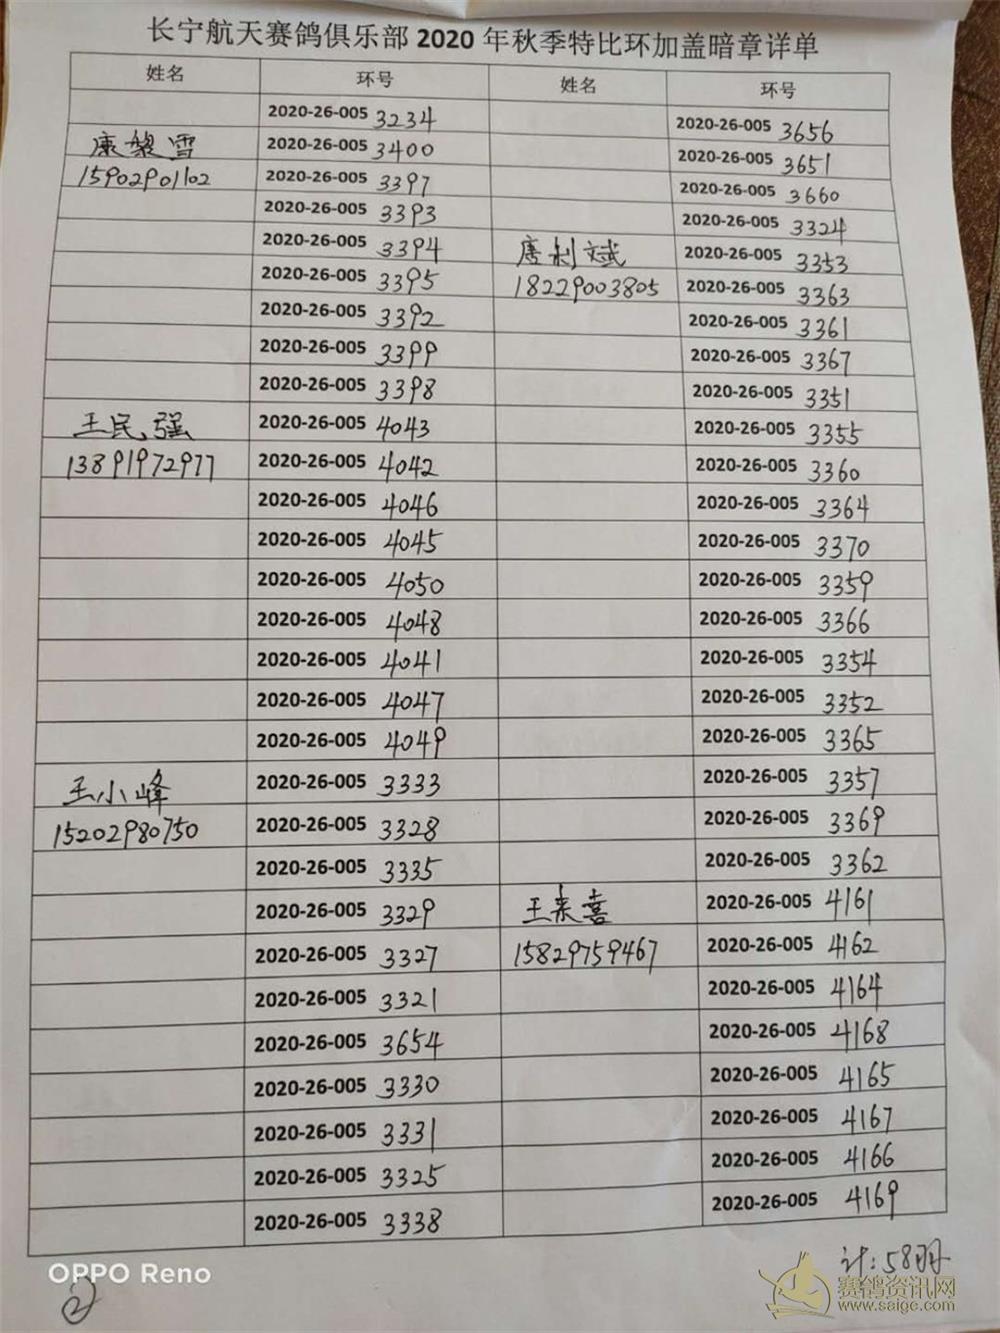 长宁航天赛鸽俱乐部 2020 年秋季特比环加盖暗章详单
姓名 环号 姓名 环号
2020-26-005 3234 2020-26-005 3656
康黎雪 2020-26-005 3400 2020-26-005 3651
15902901102 2020-26-005 3397 2020-26-005 3660
2020-26-005 3393 2020-26-005 3324
2020-26-005 3394 唐利斌 2020-26-005 3353
2020-26-005 3395 18229003805 2020-26-005 3363
2020-26-005 3392 2020-26-005 3361
2020-26-005 3399 2020-26-005 3367
2020-26-005 3398 2020-26-005 3351
王民强 2020-26-005 4043 2020-26-005 3355
13891972977 2020-26-005 4042 2020-26-005 3360
2020-26-005 4046 2020-26-005 3364
2020-26-005 4045 2020-26-005 3370
2020-26-005 4050 2020-26-005 3359
2020-26-005 4048 2020-26-005 3366
2020-26-005 4041 2020-26-005 3354
2020-26-005 4047 2020-26-005 3352
2020-26-005 4049 2020-26-005 3365
王小峰 2020-26-005 3333 2020-26-005 3357
15202980750 2020-26-005 3328 2020-26-005 3369
2020-26-005 3335 2020-26-005 3362
2020-26-005 3329 王来喜 2020-26-005 4161
2020-26-005 3327 15829759467 2020-26-005 4162
2020-26-005 3321 2020-26-005 4164
2020-26-005 3654 2020-26-005 4168
2020-26-005 3330 2020-26-005 4165
2020-26-005 3331 2020-26-005 4167
2020-26-005 3325 2020-26-005 4166
2020-26-005 3338 2020-26-005 4169
计:58羽
OPPO Reno
②
赛鸽资讯网
www.saige.com